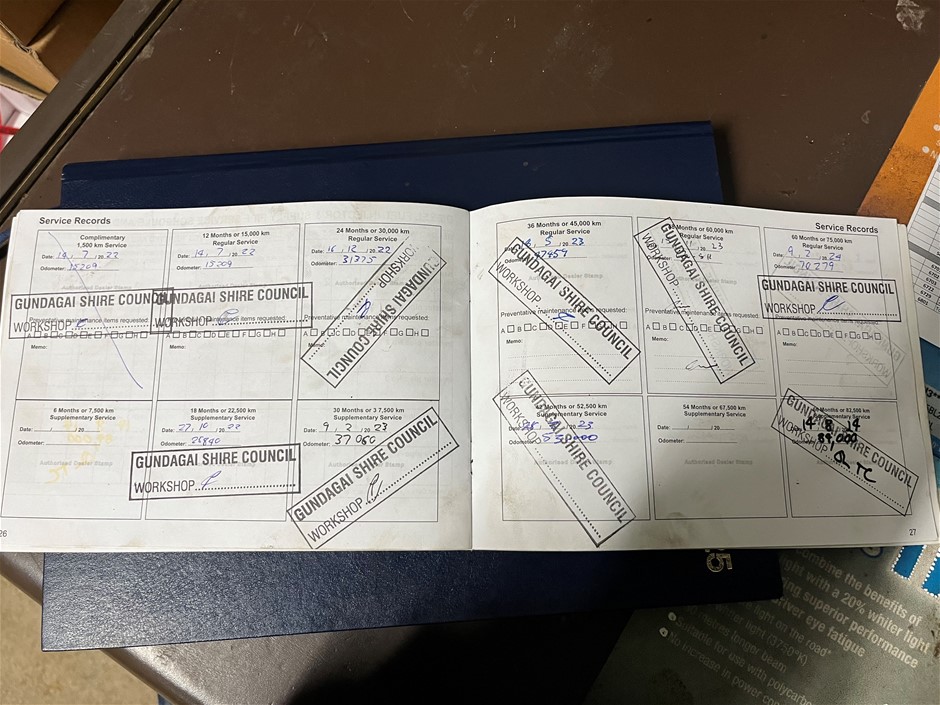 Service Records
Complimentary
1,500 km Service
Date: 14 / 7 / 20 22
Odometer: 15209
GUNDAGAI SHIRE COUNCIL
WORKSHOP
Preventative maintenance items requested:
A B C D E F G H
Memo:
12 Months or 15,000 km
Regular Service
Date: 14 / 7 / 20 22
Odometer: 15209
GUNDAGAI SHIRE COUNCIL
WORKSHOP
A B C D E F G H
Memo:
24 Months or 30,000 km
Regular Service
Date: 16 / 12 / 20 22
Odometer: 31375
GUNDAGAI SHIRE COUNCIL
WORKSHOP
Preventative maintenance items requested:
Memo:
6 Months or 7,500 km
Supplementary Service
Date:
Odometer:
Authorised Dealer Stamp
18 Months or 22,500 km
Supplementary Service
Date: 27 , 10 , 20 22
Odometer:
GUNDAGAI SHIRE COUNCIL
WORKSHOP
30 Months or 37,500 km
Supplementary Service
9 , 2 , 20 23
37060
GUNDAGAI SHIRE COUNCIL
WORKSHOP
26
Service Records
36 Months or 45,000 km
Regular Service
5 / 20 23
47457
GUNDAGAI SHIRE COUNCIL
WORKSHOP
Preventative maintenance items requested:
Memo:
60,000 km
Regular Service
GUNDAGAI SHIRE COUNCIL
WORKSHOP
Memo:
60 Months or 75,000 km
Regular Service
Date: 9 / 2 / 20 24
Odometer: 70279
GUNDAGAI SHIRE COUNCIL
WORKSHOP
Preventative maintenance items requested:
A B C D E F G H
Memo:
52,500 km
Supplementary Service
20 23
GUNDAGAI SHIRE COUNCIL
WORKSHOP
54 Months or 67,500 km
Supplementary Service
Date: / / 20
Odometer:
Authorised Dealer Stamp
82,500 km
Supplementary Service
14 8
89,000
GUNDAGAI SHIRE COUNCIL
WORKSHOP
27
Combine the benefits of
light with a 20% whiter light
superior performance
driver eye fatigue
light on the road*
longer beam
(3750°K)
Suitable for use with
No increase in power